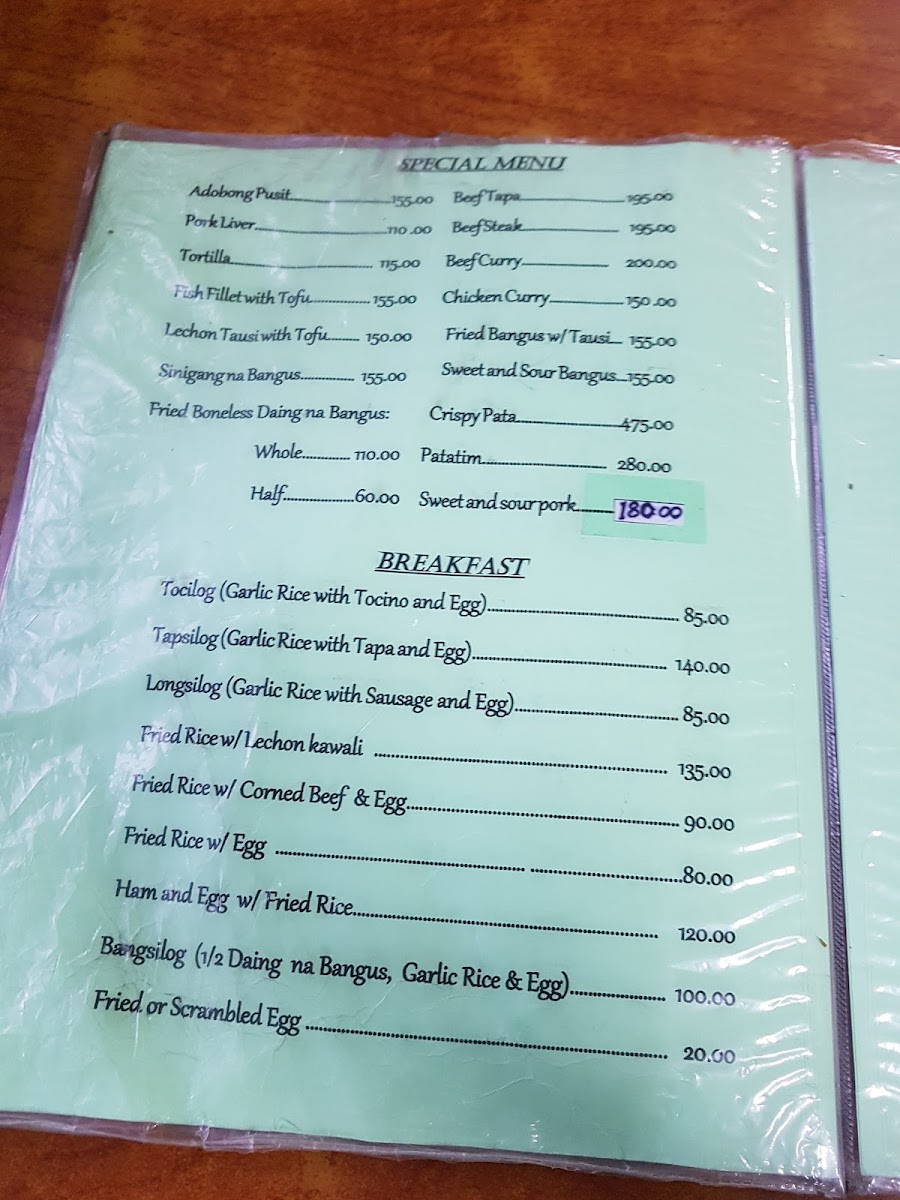 SPECIAL MENU
Adobong Pusit..............................155.00 Beef Tapa..............................195.00
Pork Liver..............................110 .00 Beef Steak.............................. 195.00
Tortilla.............................. 115.00 Beef Curry.............................. 200.00
Fish Fillet with Tofu................ 155.00 Chicken Curry....................150 .00
Lechon Tausi with Tofu......... 150.00 Fried Bangus w/ Tausi... 155.00
Sinigang na Bangus............... 155.00 Sweet and Sour Bangus...155.00
Fried Boneless Daing na Bangus: Crispy Pata..............................475.00
Whole............. 110.00 Patatim.............................. 280.00
Half...................60.00 Sweet and sour pork.......... 180.00
BREAKFAST
Tocilog (Garlic Rice with Tocino and Egg).............................. 85.00
Tapsilog (Garlic Rice with Tapa and Egg).............................. 140.00
Longsilog (Garlic Rice with Sausage and Egg).............................. 85.00
Fried Rice w/ Lechon kawali .............................. 135.00
Fried Rice w/ Corned Beef & Egg.............................. 90.00
Fried Rice w/ Egg ............................................................80.00
Ham and Egg w/ Fried Rice.............................. 120.00
Bangsilog (1/2 Daing na Bangus, Garlic Rice & Egg).................... 100.00
Fried or Scrambled Egg .............................. 20.00